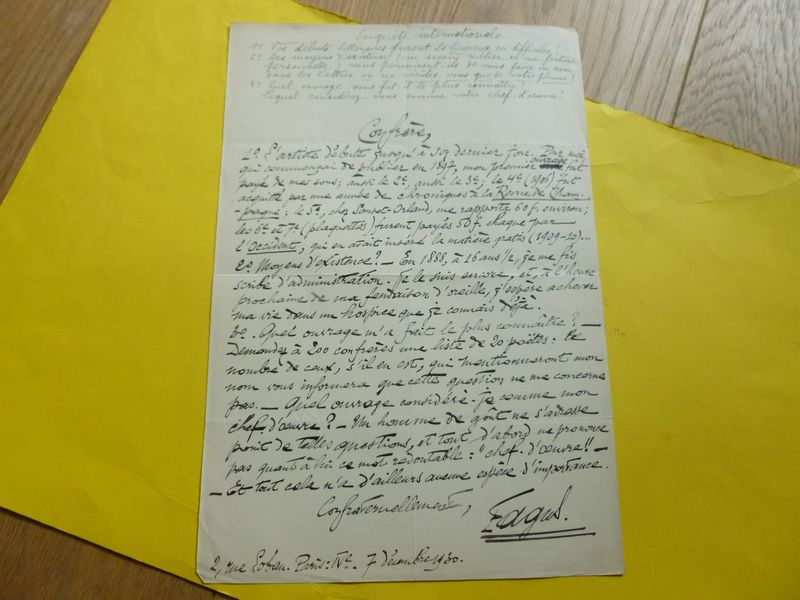 Enquête internationale
1° Vos débuts littéraires furent-ils heureux ou difficiles?
2° Des moyens d'existence (un second métier ou une fortune
personnelle) vous permirent-ils de vous faire un nom
dans les lettres ou ne vécûtes-vous que de votre plume?
Quel ouvrage vous fit le plus connaître?
Lequel considérez-vous comme votre chef d'œuvre?
Confrère,
1°. L'artiste débute jusqu'à son dernier jour. Par moi,
qui commençai de publier en 1897, mon premier ouvrage fut
payé de mes sous; aussi le 2e, aussi le 3e; le 4e (1906) fut
acquitté par une année de chroniques à la Revue de Cham-
pagne; le 5e, chez Sansot-Orland, me rapporta 60 f. environ;
les 6e et 7e (plaquettes) furent payés 50 f. chaque par
L'Occident, qui en avait inséré la matière gratis (1909-10)...
2° Moyens d'existence? — En 1888, à 16 ans 1/2, je me fis
scribe d'administration. Je le suis encore, et, à l'heure
prochaine de ma fendaison d'oreille, j'espère achever
ma vie dans un hospice que je connais déjà.
3°. Quel ouvrage m'a fait le plus connaître? —
Demandez à 200 confrères une liste de 20 poètes: le
nombre de ceux, s'il en est, qui mentionneront mon
nom vous informera que cette question ne me concerne
pas. — Quel ouvrage considéré-je comme mon
chef d'œuvre? — Un homme de goût ne s'adresse
point de telles questions, et tout d'abord ne prononce
pas quant à lui ce mot redoutable: "chef-d'œuvre"! —
— Et tout cela n'a d'ailleurs aucune espèce d'importance.
Confraternellement,
Fagus.
2, rue Lobau. Paris-IVe. 7 décembre 1930.